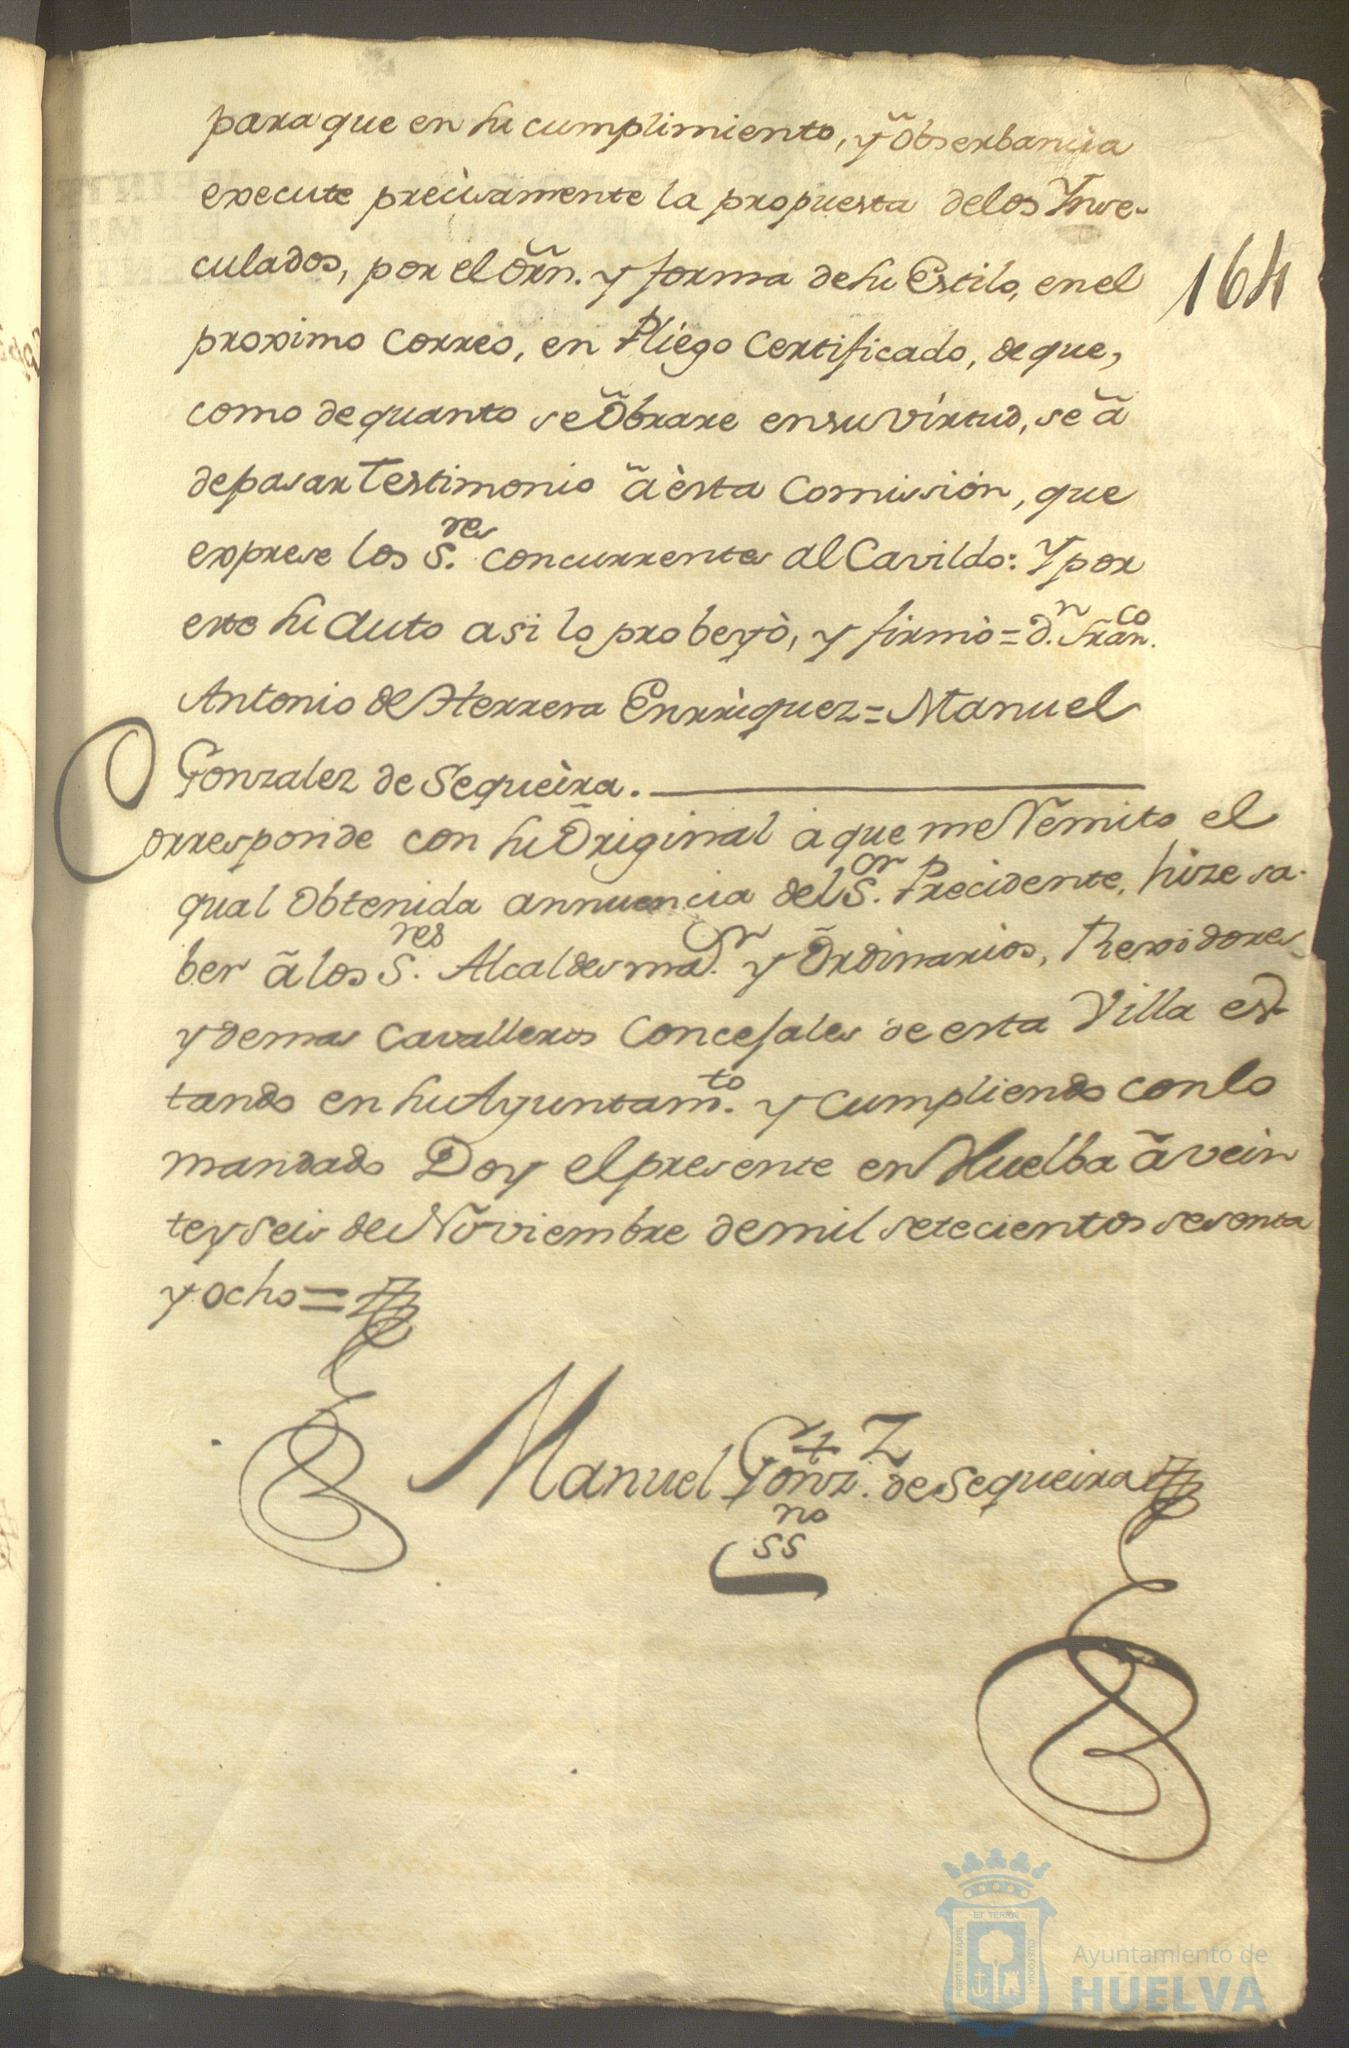 para que en su cumplimiento, y õbserbancia
execute precisamente la propuesta delos Ynse-
culados, por el õrn. y forma de su Estilo, en el
proximo correo, en Pliego Certificado, de que,
como de quanto se õbrare en su virtud, se ã
de pasar Testimonio ã èsta Comissiòn, que
exprese los S.res concurrentes al Cavildo: Y por
este su Auto asi lo probeyò, y firmò = D.n Fran.co
Antonio de Herrera Enrriquez = Manuel
Gonzalez de Sequeìra.
164
Corresponde con su Õriginal à que me Remito el
qual Obtenida annuencia del S.or Precidente, hize sa-
ber ã los S.res Alcaldes ma.r y Õrdinarios, Rexidores
y demas Cavalleros Concejales de esta Villa es-
tando en su Ayuntam.to y cumpliendo con lo
mandado Doy el presente en Huelba ã vein
te y seis de Noviembre de mil setecientos sesenta
y ocho =
Manuel Gonz.z de Sequeira
no
SS
ET TERRÆ
PORTUS MARIS
CUSTODIA
Ayuntamiento de
HUELVA